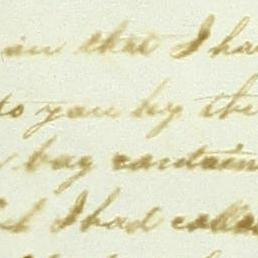 that I ha
to you by the
bag contain
I had colle